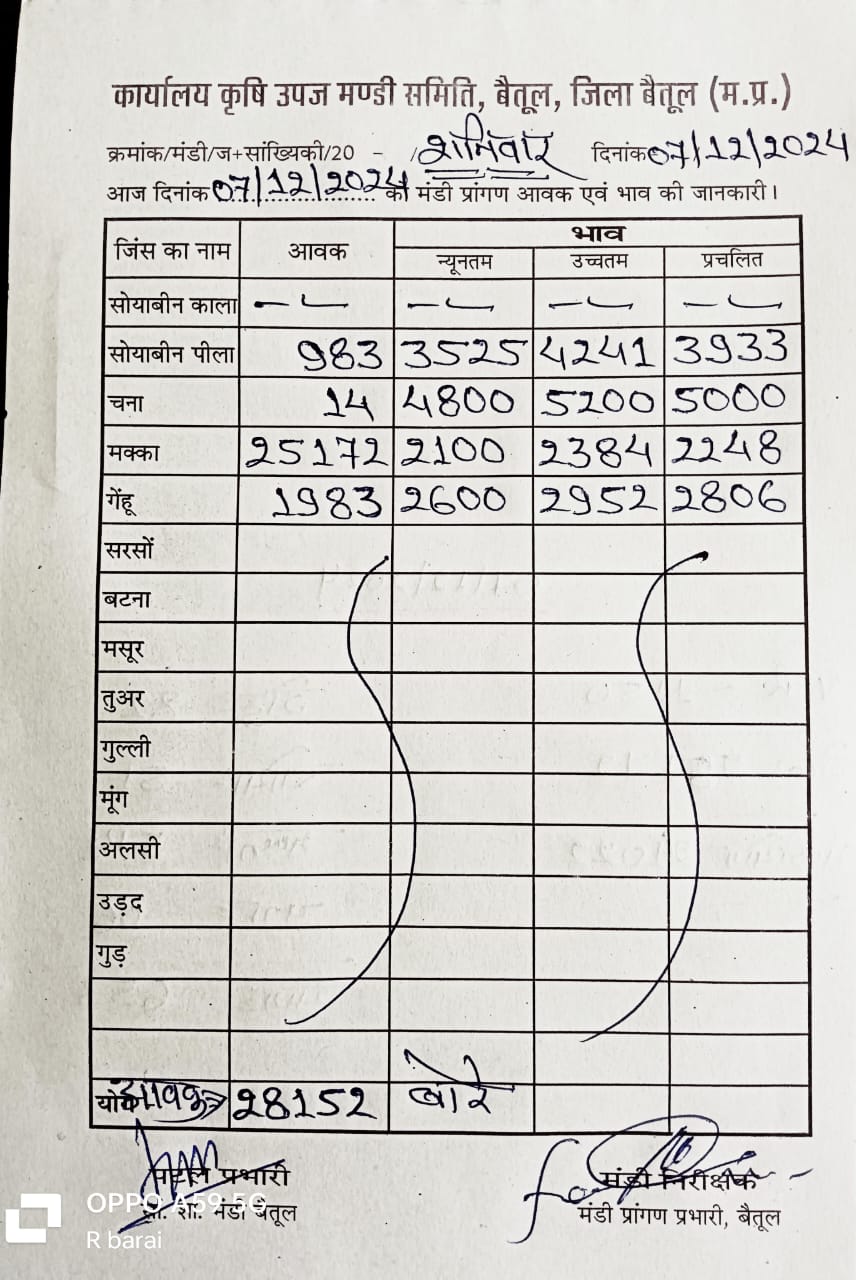 कार्यालय कृषि उपज मण्डी समिति, बैतूल, जिला बैतूल (म.प्र.)
क्रमांक/मंडी/ज+सांख्यिकी/20 - /शनिवार दिनांक 07/12/2024
आज दिनांक 07/12/2024 को मंडी प्रांगण आवक एवं भाव की जानकारी।
जिंस का नाम आवक भाव
न्यूनतम उच्चतम प्रचलित
सोयाबीन काला - - - -
सोयाबीन पीला 983 3525 4241 3933
चना 14 4800 5200 5000
मक्का 25172 2100 2384 2248
गेंहू 1983 2600 2952 2806
सरसों
बटना
मसूर
तुअर
गुल्ली
मूंग
अलसी
उड़द
गुड़
आवक 28152 बोरे
प्रभारी मंडी निरीक्षक
शा. मंडी बैतूल मंडी प्रांगण प्रभारी, बैतूल
OPPO A59 5G
R barai